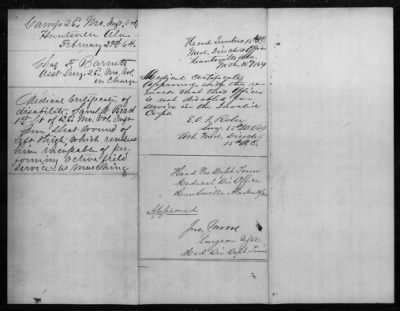 Camp 26. Mo. Inft. Vol
Huntsville Ala.
February 29th 64.
Chas. F.
Asst Surg. 26. Mo. Vol.
in Charge
Medical Certificate of
disability,
1st Lt of 26. Mo. Vol. Inft.
from Shot wound of
left thigh, which renders
him incapable of per-
forming Active field
service: as marching
Head Quarters 15th A.C.
Med. Directors Office
Huntsville Ala.
Mch. 10th 1864
Medical Certificate
approved with the re-
mark that this Officer
is not disabled for
service in the Invalid
Corps.
Surg.
Act. Med. Director
15th A.C.
Head Qrs Dept Tenn
Medical Dir Office
Huntsville
Approved
Jno. Moore
Surgeon USA
Med. Dir Dept Tenn